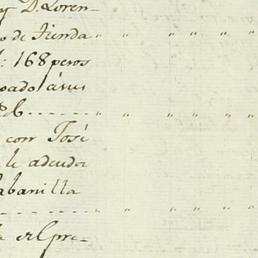 y D. Loren-
o de Tienda
: 168 peros
oado á sus
8b
con José
le adeuda
abanilla
el Gpre-